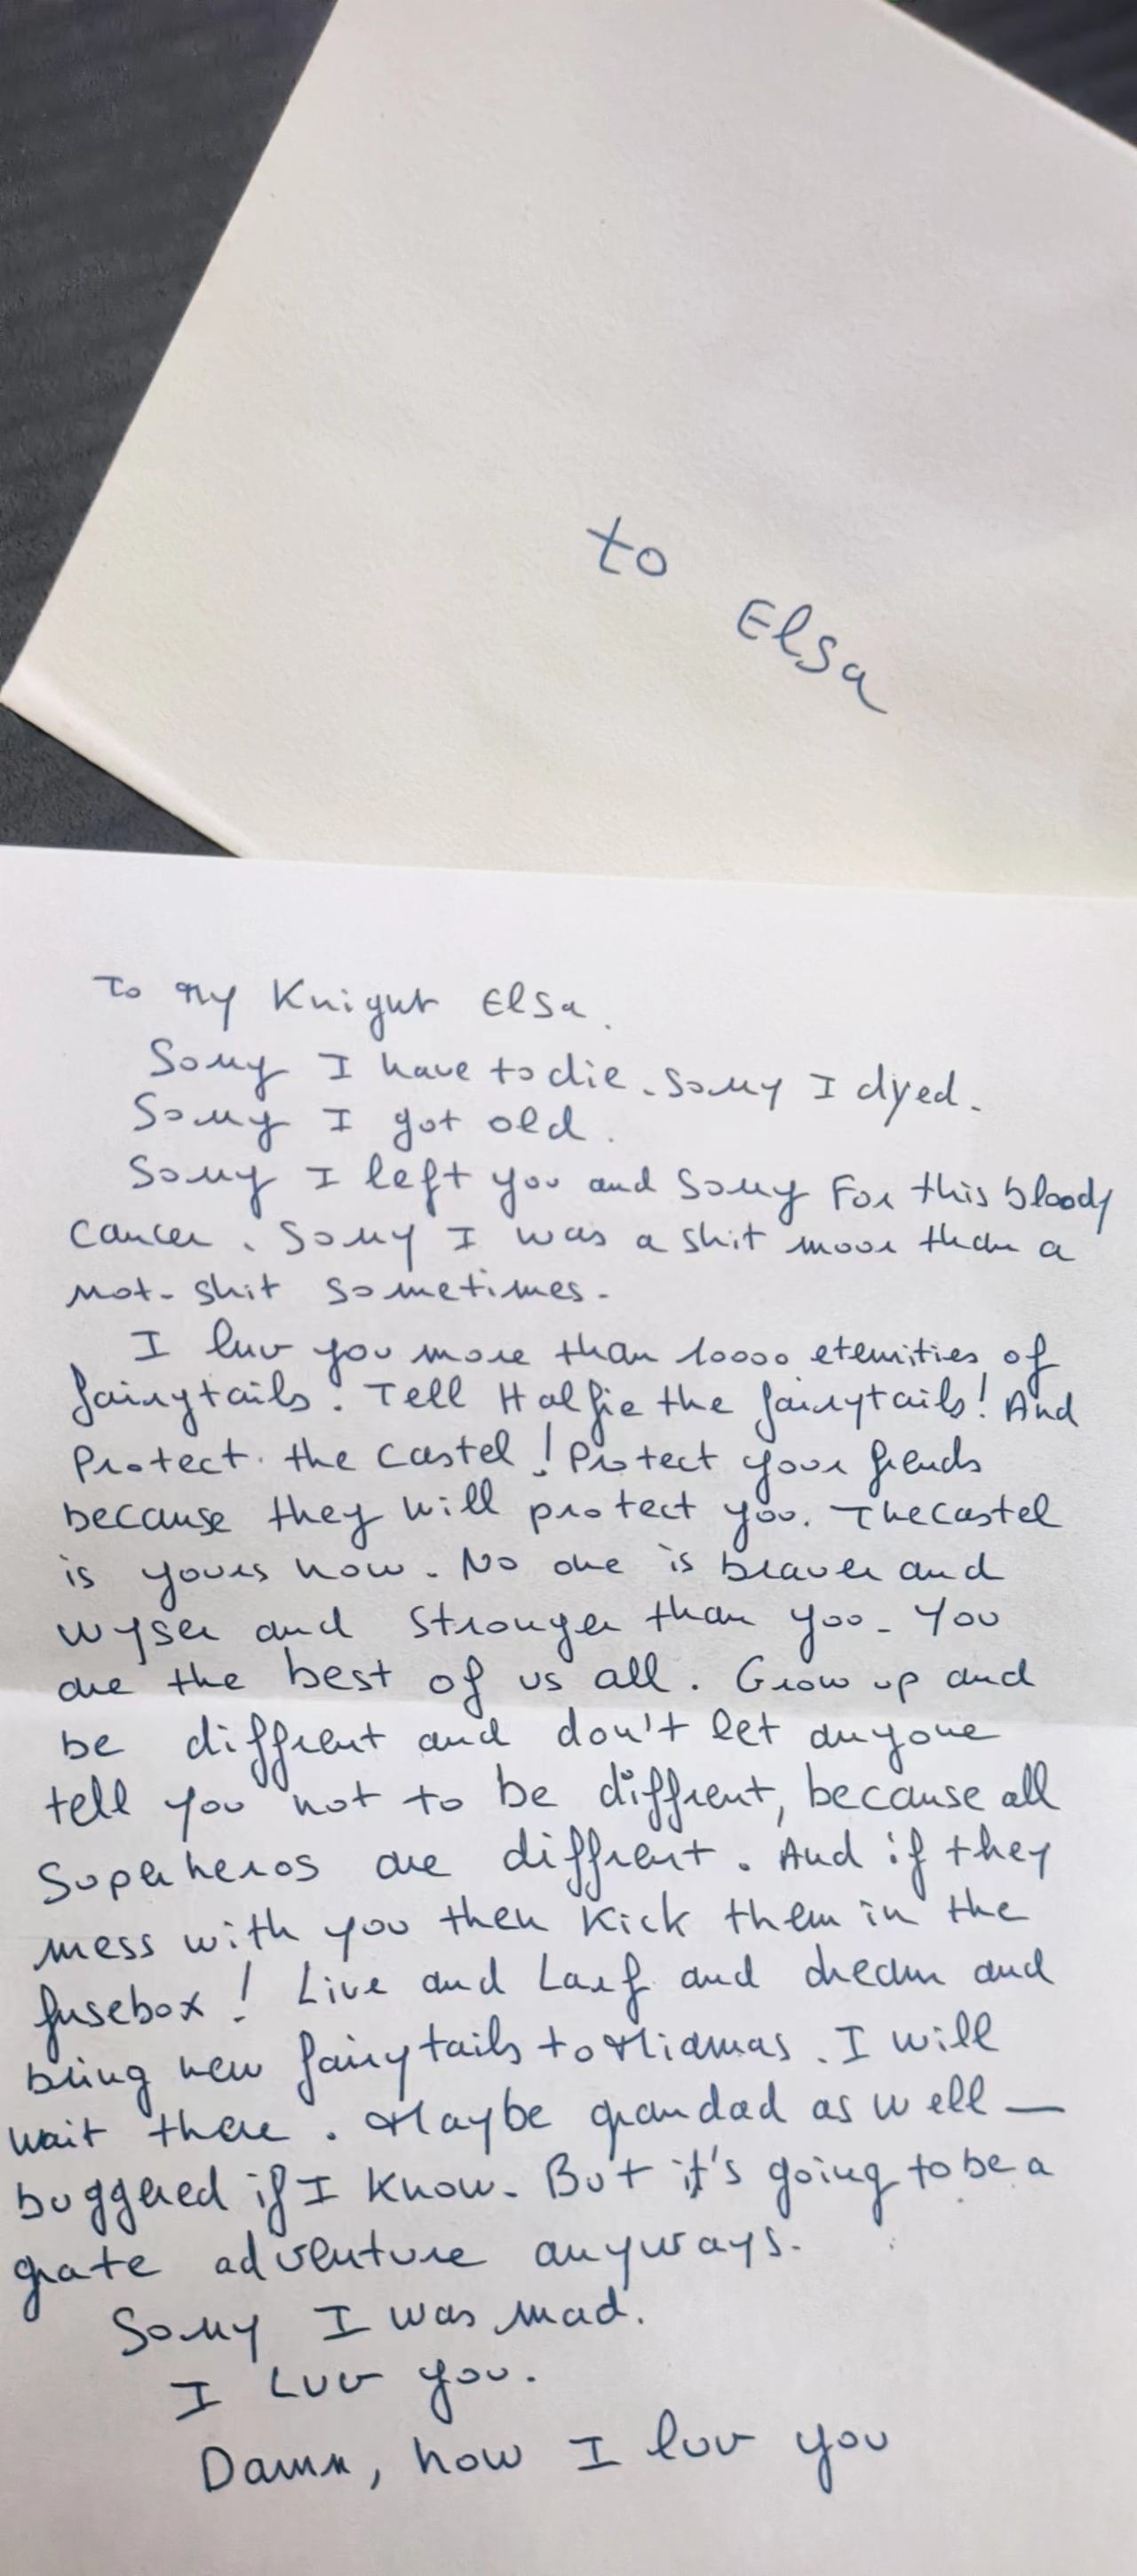 to
Elsa
To My Knight Elsa.
Sorry I have to die. Sorry I dyed.
Sorry I got old.
Sorry I left you and sorry For this bloody
cancer. Sorry I was a shit moor than a
not-shit sometimes.
I luv you more than 10000 eternities of
fairytails. Tell Halfie the fairytails! And
Protect the castel! Protect your frends
because they will protect you. The castel
is yours now. No one is braver and
wyser and stronger than yoo. You
are the best of us all. Grow up and
be diffrent and don't let anyone
tell you not to be diffrent, because all
Superheros are diffrent. And if they
mess with you then Kick them in the
fusebox! Live and Larf and dream and
bring new fairytails to Miamas. I will
wait there. Maybe grandad as well —
buggered if I know. But it's going to be a
grate adventure anyways.
Sorry I was mad.
I Luv you.
Damn, how I luv you